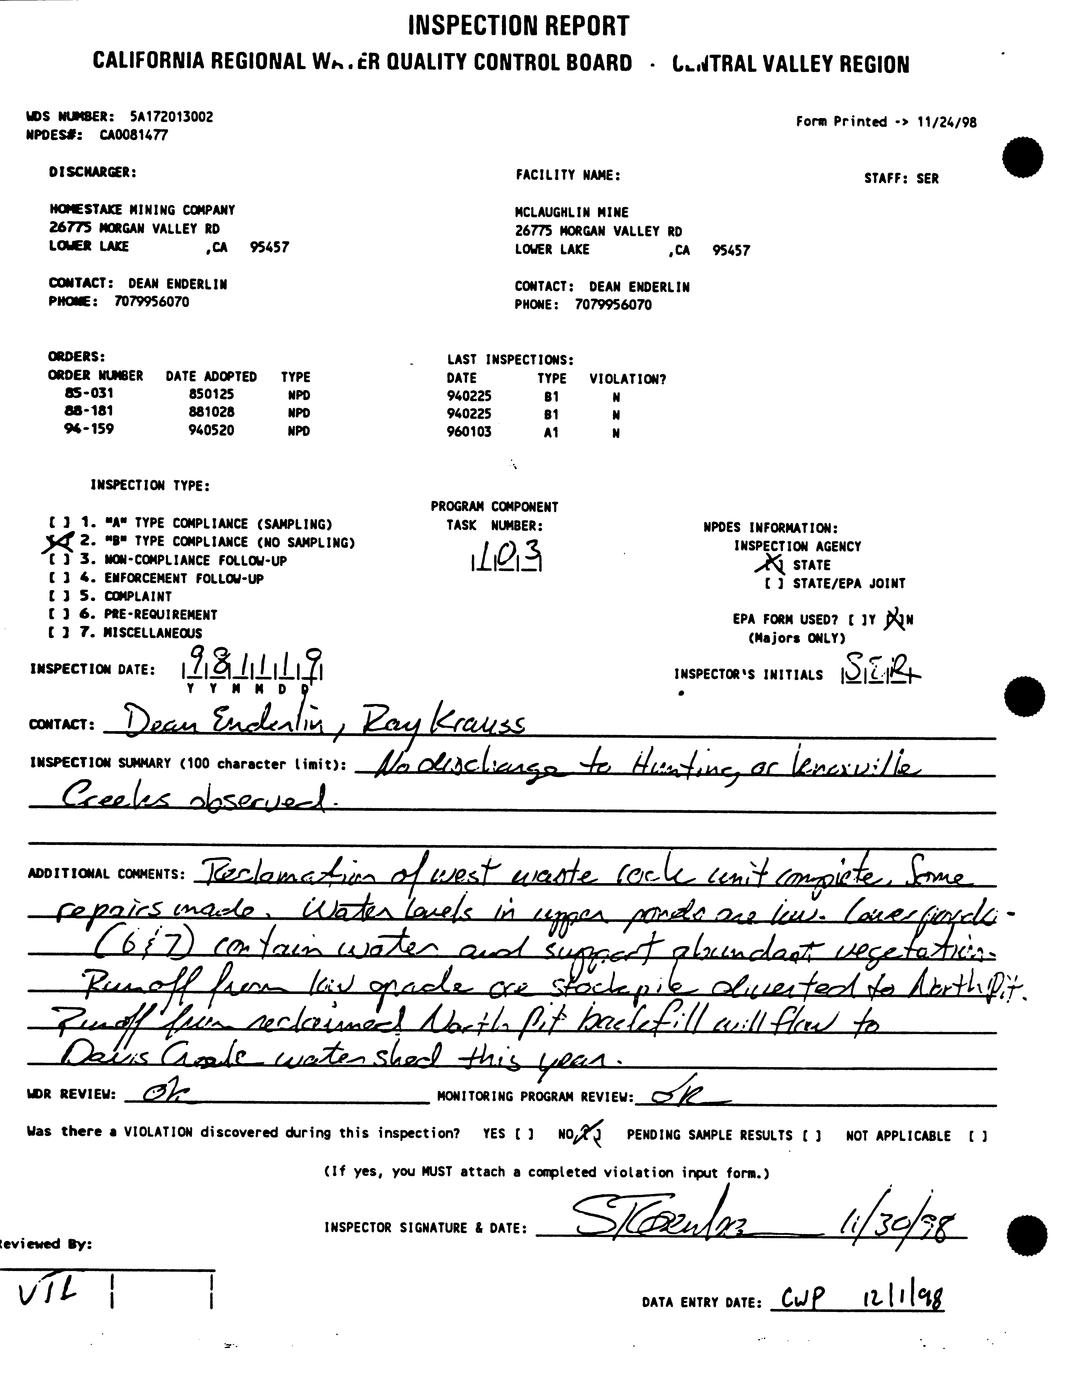 INSPECTION REPORT
CALIFORNIA REGIONAL WATER QUALITY CONTROL BOARD - CENTRAL VALLEY REGION
WDS NUMBER: 5A172013002
NPDES#: CA0081477
Form Printed -> 11/24/98
DISCHARGER:
FACILITY NAME:
STAFF: SER
HOMESTAKE MINING COMPANY
26775 MORGAN VALLEY RD
LOWER LAKE ,CA 95457
MCLAUGHLIN MINE
26775 MORGAN VALLEY RD
LOWER LAKE ,CA 95457
CONTACT: DEAN ENDERLIN
PHONE: 7079956070
CONTACT: DEAN ENDERLIN
PHONE: 7079956070
ORDERS:
ORDER NUMBER DATE ADOPTED TYPE
85-031 850125 NPD
88-181 881028 NPD
94-159 940520 NPD
LAST INSPECTIONS:
DATE TYPE VIOLATION?
940225 B1 N
940225 B1 N
960103 A1 N
INSPECTION TYPE:
[ ] 1. "A" TYPE COMPLIANCE (SAMPLING)
[X] 2. "B" TYPE COMPLIANCE (NO SAMPLING)
[ ] 3. NON-COMPLIANCE FOLLOW-UP
[ ] 4. ENFORCEMENT FOLLOW-UP
[ ] 5. COMPLAINT
[ ] 6. PRE-REQUIREMENT
[ ] 7. MISCELLANEOUS
PROGRAM COMPONENT
TASK NUMBER:
103
NPDES INFORMATION:
INSPECTION AGENCY
[X] STATE
[ ] STATE/EPA JOINT
EPA FORM USED? [ ]Y [X]N
(Majors ONLY)
INSPECTION DATE: 981119
Y Y M M D D
INSPECTOR'S INITIALS SER
CONTACT: Dean Enderlin, Ray Krauss
INSPECTION SUMMARY (100 character limit): No discharge to Hunting or Knoxville
Creeks observed.
ADDITIONAL COMMENTS: Reclamation of west waste rock unit complete. Some
repairs made. Water levels in upper ponds are low. Lower ponds
(6&7) contain water and support abundant vegetation.
Runoff from low grade ore stockpile diverted to North Pit.
Runoff from reclaimed North Pit backfill will flow to
Davis Creek watershed this year.
WDR REVIEW: OK MONITORING PROGRAM REVIEW: OK
Was there a VIOLATION discovered during this inspection? YES [ ] NO [X] PENDING SAMPLE RESULTS [ ] NOT APPLICABLE [ ]
(If yes, you MUST attach a completed violation input form.)
INSPECTOR SIGNATURE & DATE: 11/30/98
Reviewed By:
VIL
DATA ENTRY DATE: CWP 12/1/98